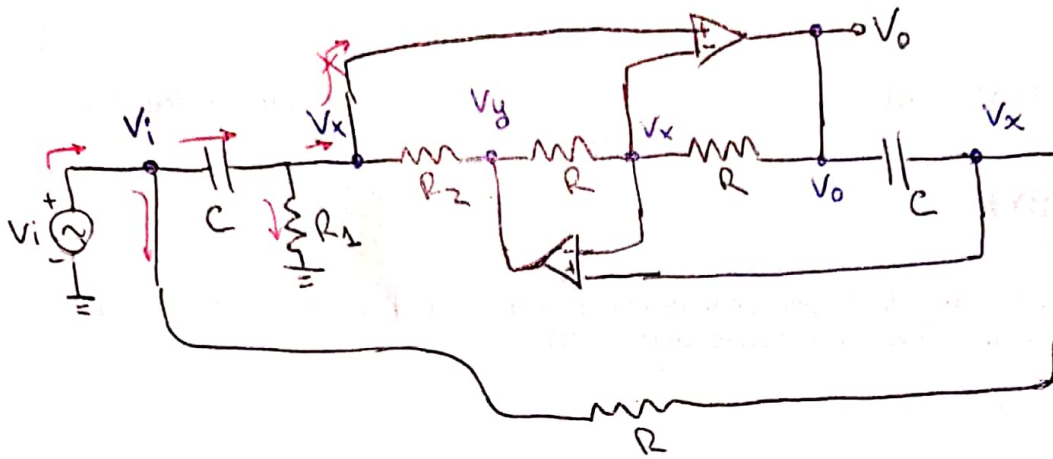 + -
V₀
Vi
Vx
Vy
Vx
Vx
+
Vi
-
C
R₁
R₂
R
R
V₀
C
- +
R